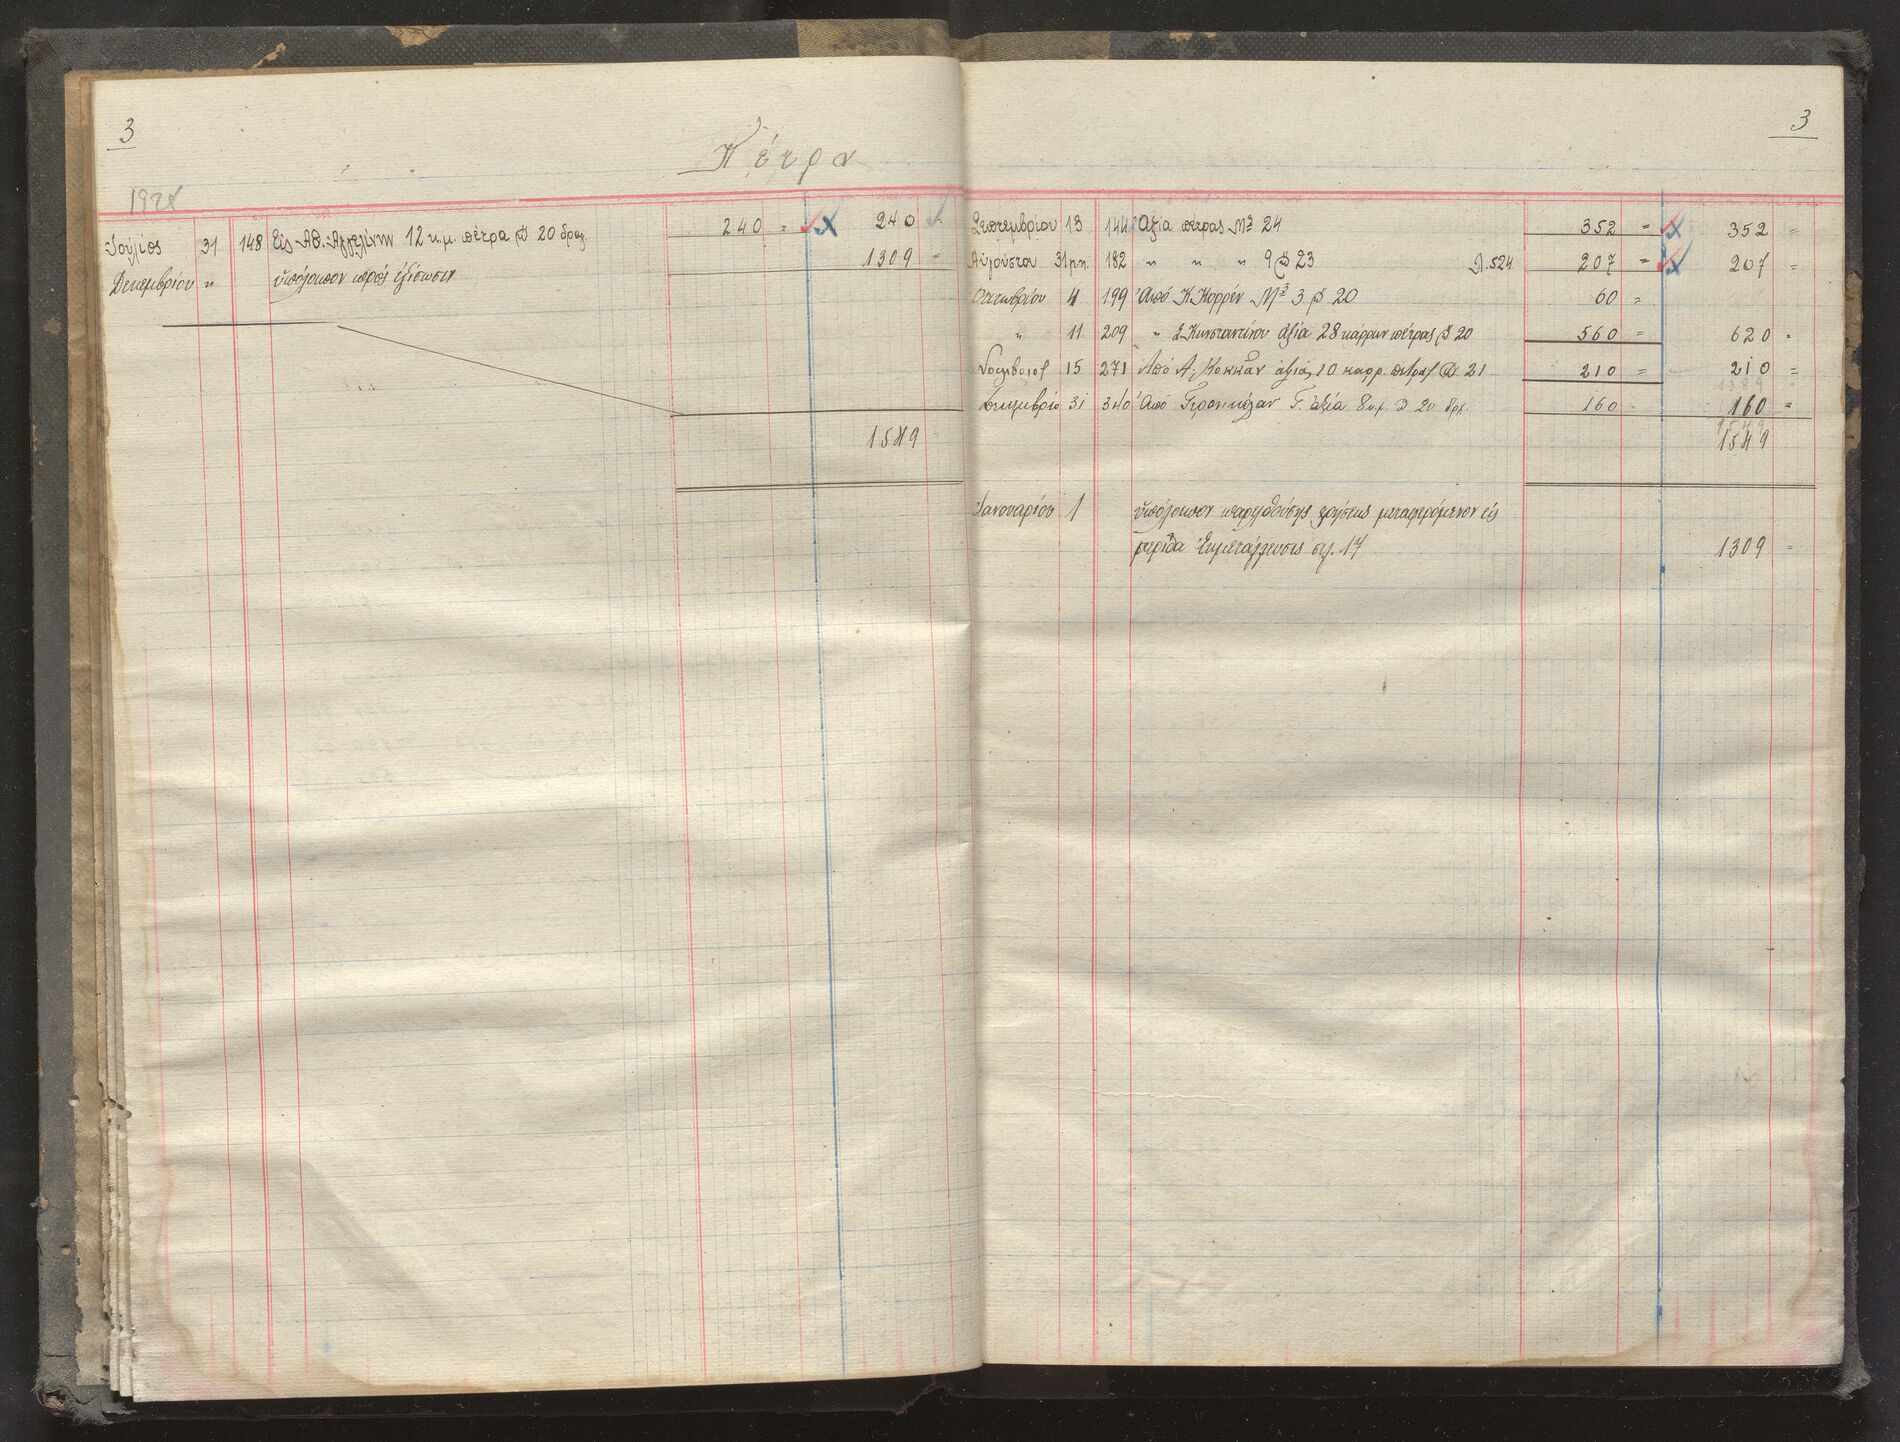 3
Πέτρα
192
Ἰούλιος 31 148 Εἰς Ἀθ. Ἀγγελίνην 12 κ.μ. πέτρα @ 20 δραχ. 240 = 240 =
Δεκεμβρίου " ὑπόλοιπον πρὸς ἐξίσωσιν 1309 =
1549 =
3
Σεπτεμβρίου 13 144 Ἀξία πέτρας Μ3 24 352 = 352 =
Αὐγούστου 31 182 " " " 9 @ 23 Λ. 524 207 = 207 =
Ὀκτωβρίου 4 199 Ἀπὸ Κ. Κορρέν Μ3 3 @ 20 60 =
" 11 209 " Σ. Κωνσταντίνου ἀξία 28 κάρρων πέτρας @ 20 560 = 620 =
15 271 Ἀπὸ Α. Κοκκάν ἀξία 10 καρρ. πέτρας @ 21 210 = 210 =
1389
31 340 Ἀπὸ Γ. ἀξία 8 κ.μ. @ 20 δρχ. 160 = 160 =
1549
1549
Ἰανουαρίου 1 ὑπόλοιπον παρελθούσης χρήσεως μεταφερόμενον εἰς
μερίδα Ἐκμετάλλευσις σελ. 17 1309 =